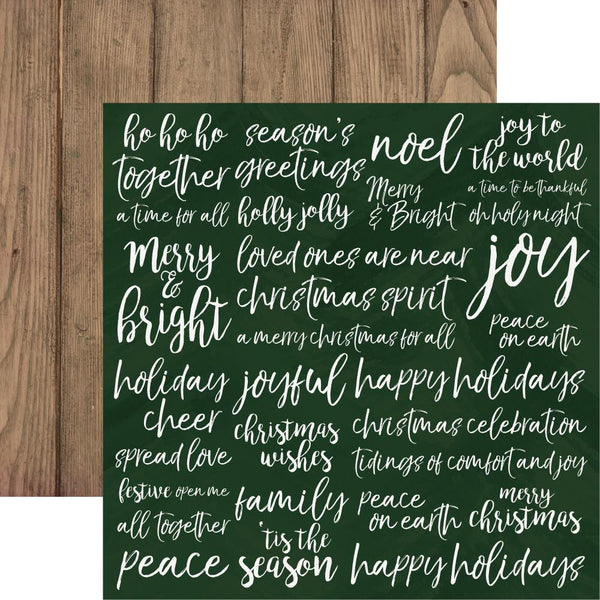 ho ho ho
season's
greetings
noel
joy to
the world
together
Merry
& Bright
a time to be thankful
a time for all
holly jolly
oh holy night
Merry
&
bright
loved ones are near
joy
christmas spirit
a merry christmas for all
peace
on earth
holiday
cheer
joyful
happy holidays
christmas
wishes
christmas celebration
spread love
tidings of comfort and joy
festive open me
family
peace
on earth
merry
christmas
all together
'tis the
season
peace
happy holidays